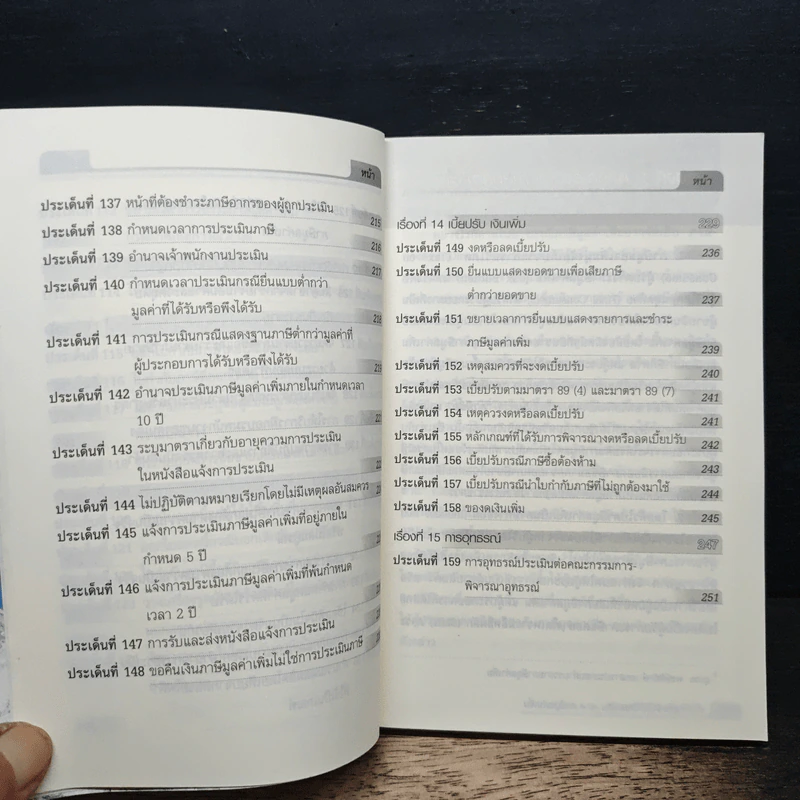 หน้า
ประเด็นที่ 137 หน้าที่ต้องชำระภาษีอากรของผู้ถูกประเมิน 215
ประเด็นที่ 138 กำหนดเวลาการประเมินภาษี 216
ประเด็นที่ 139 อำนาจเจ้าพนักงานประเมิน 217
ประเด็นที่ 140 กำหนดเวลาประเมินกรณียื่นแบบต่ำกว่า
มูลค่าที่ได้รับหรือพึงได้รับ 218
ประเด็นที่ 141 การประเมินกรณีแสดงฐานภาษีต่ำกว่ามูลค่าที่
ผู้ประกอบการได้รับหรือพึงได้รับ 219
ประเด็นที่ 142 อำนาจประเมินภาษีมูลค่าเพิ่มภายในกำหนดเวลา
10 ปี
ประเด็นที่ 143 ระบุมาตราเกี่ยวกับอายุความการประเมิน
ในหนังสือแจ้งการประเมิน
ประเด็นที่ 144 ไม่ปฏิบัติตามหมายเรียกโดยไม่มีเหตุผลอันสมควร
ประเด็นที่ 145 แจ้งการประเมินภาษีมูลค่าเพิ่มที่อยู่ภายใน
กำหนด 5 ปี
ประเด็นที่ 146 แจ้งการประเมินภาษีมูลค่าเพิ่มที่พ้นกำหนด
เวลา 2 ปี
ประเด็นที่ 147 การรับและส่งหนังสือแจ้งการประเมิน
ประเด็นที่ 148 ขอคืนเงินภาษีมูลค่าเพิ่มไม่ใช่การประเมินภาษี
หน้า
เรื่องที่ 14 เบี้ยปรับ เงินเพิ่ม 229
ประเด็นที่ 149 งดหรือลดเบี้ยปรับ 236
ประเด็นที่ 150 ยื่นแบบแสดงยอดขายเพื่อเสียภาษี
ต่ำกว่ายอดขาย 237
ประเด็นที่ 151 ขยายเวลาการยื่นแบบแสดงรายการและชำระ
ภาษีมูลค่าเพิ่ม 239
ประเด็นที่ 152 เหตุสมควรที่จะงดเบี้ยปรับ 240
ประเด็นที่ 153 เบี้ยปรับตามมาตรา 89 (4) และมาตรา 89 (7) 241
ประเด็นที่ 154 เหตุควรงดหรือลดเบี้ยปรับ 241
ประเด็นที่ 155 หลักเกณฑ์ที่ได้รับการพิจารณางดหรือลดเบี้ยปรับ 242
ประเด็นที่ 156 เบี้ยปรับกรณีภาษีซื้อต้องห้าม 243
ประเด็นที่ 157 เบี้ยปรับกรณีนำใบกำกับภาษีที่ไม่ถูกต้องมาใช้ 244
ประเด็นที่ 158 ของดเงินเพิ่ม 245
เรื่องที่ 15 การอุทธรณ์ 247
ประเด็นที่ 159 การอุทธรณ์ประเมินต่อคณะกรรมการ-
พิจารณาอุทธรณ์ 251